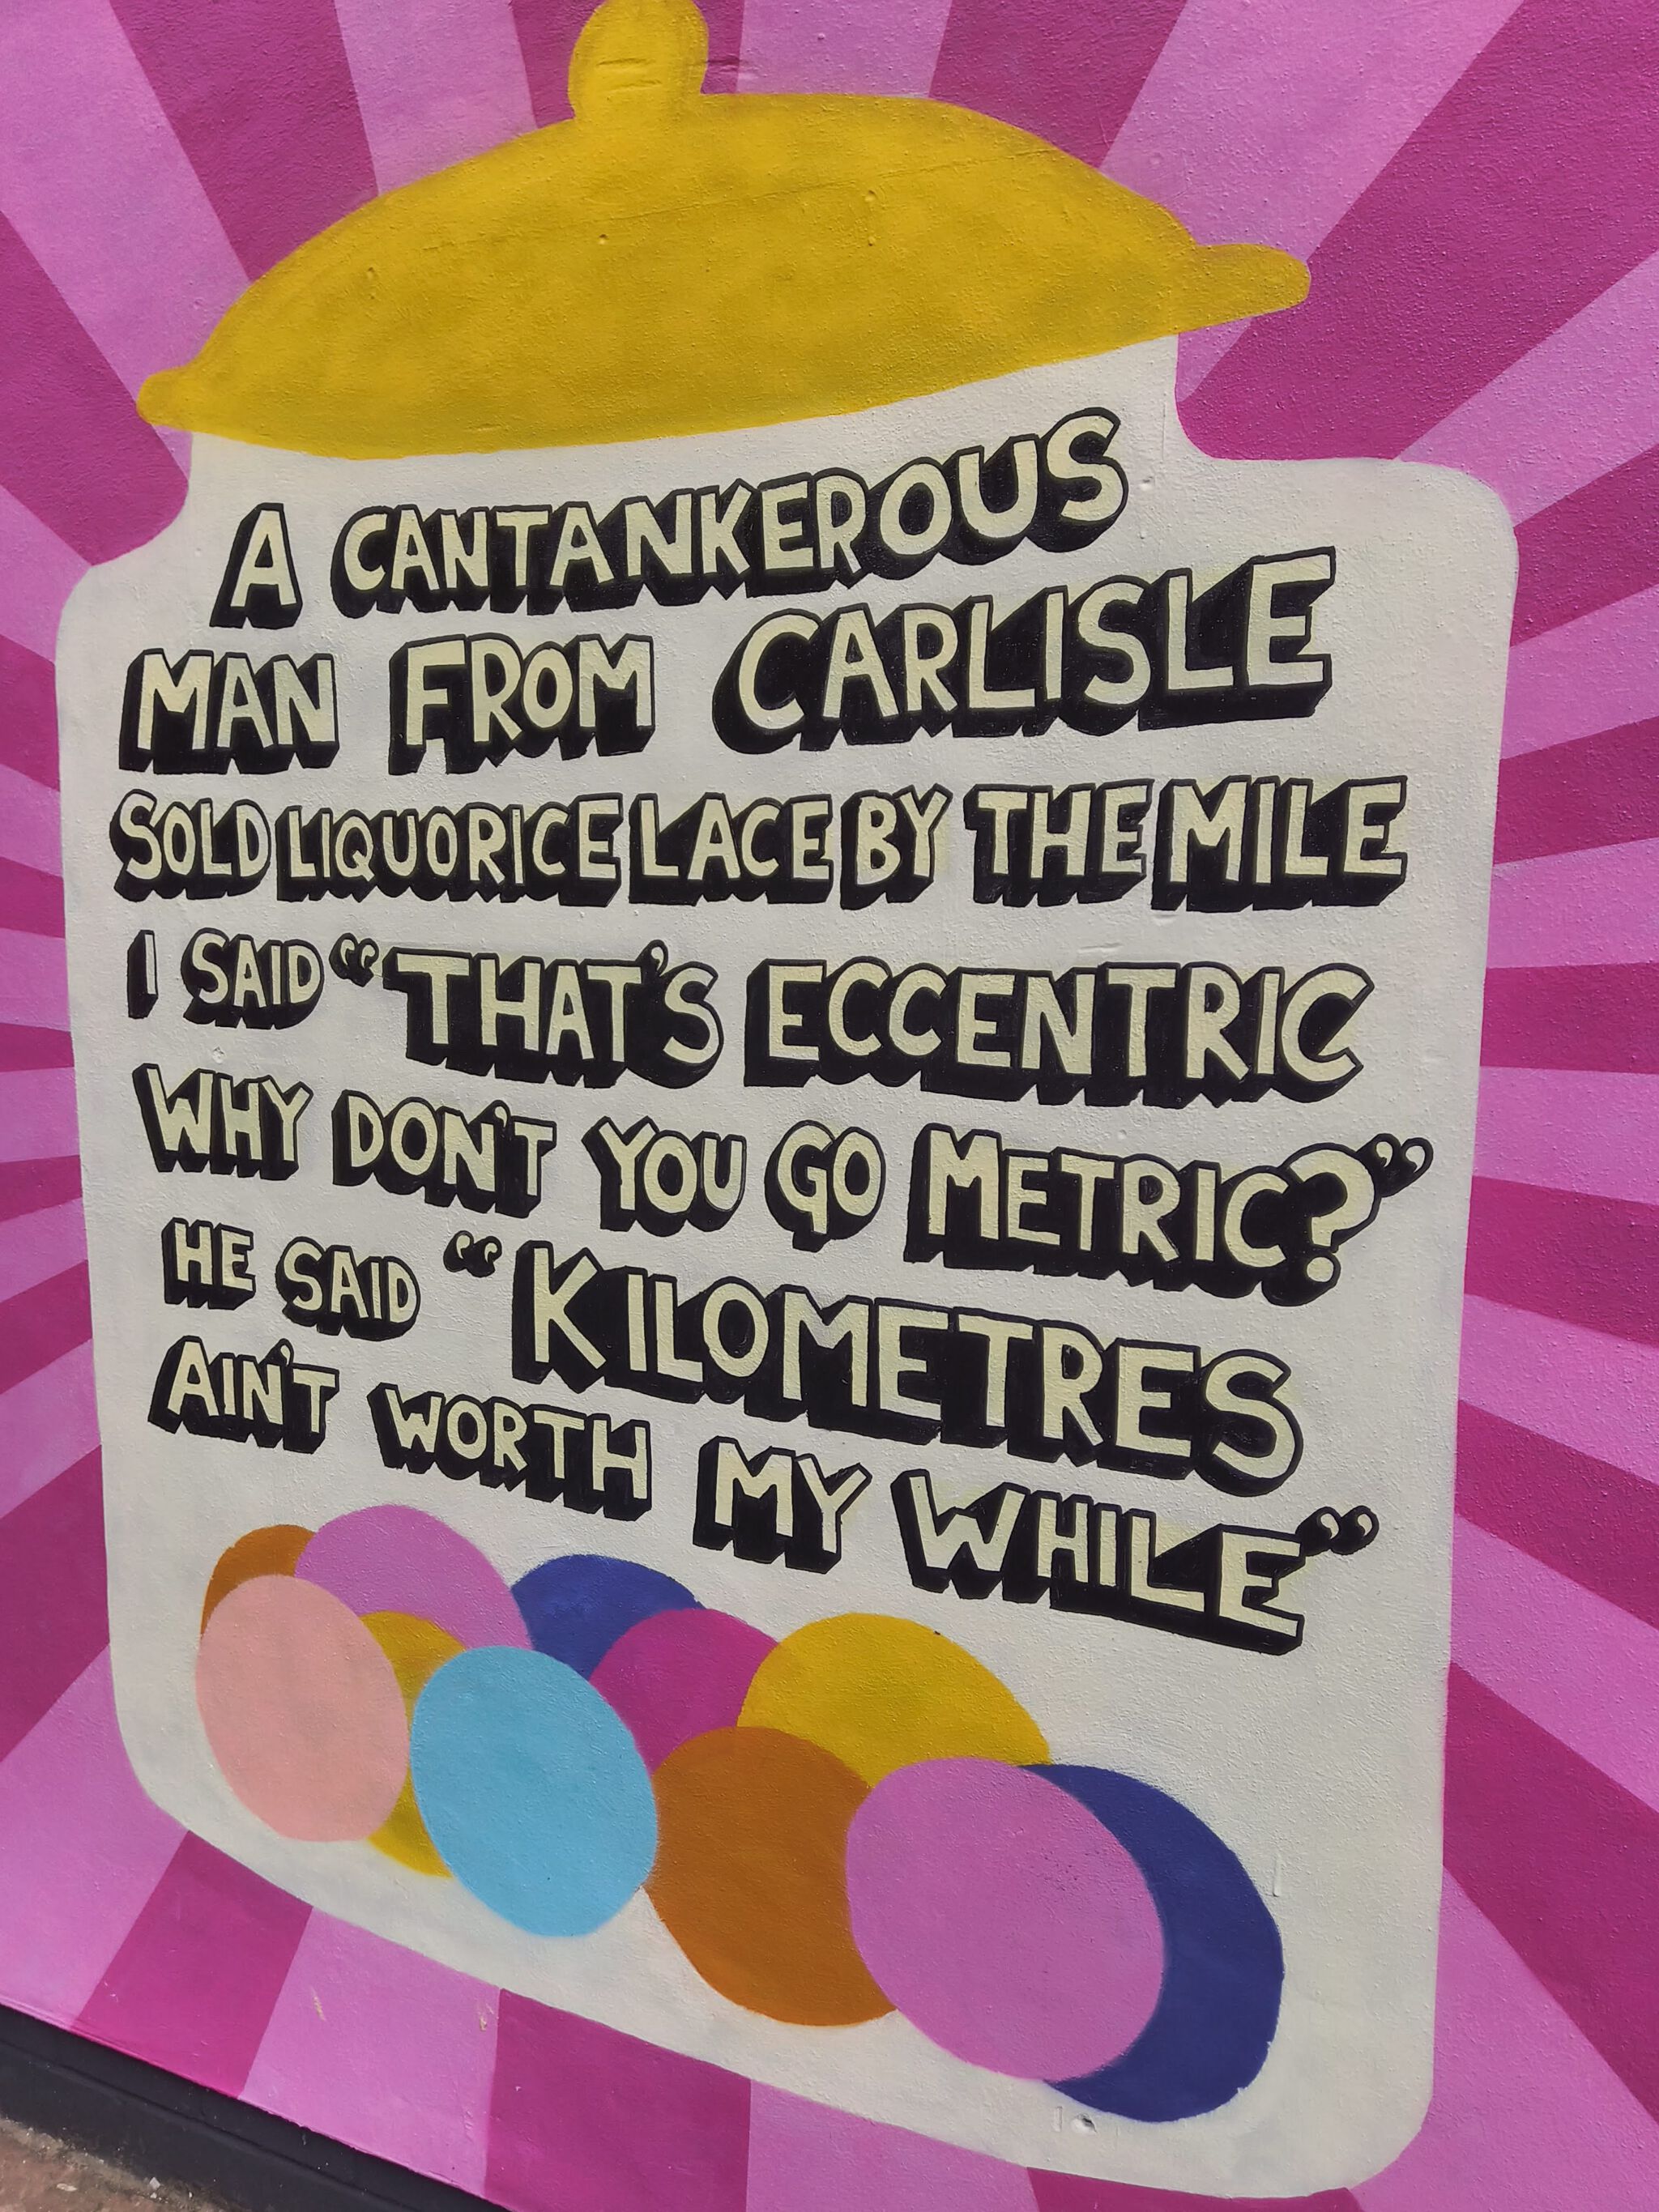 A CANTANKEROUS
MAN FROM CARLISLE
SOLD LIQUORICE LACE BY THE MILE
I SAID “THAT'S ECCENTRIC
WHY DON'T YOU GO METRIC?”
HE SAID “KILOMETRES
AIN'T WORTH MY WHILE”